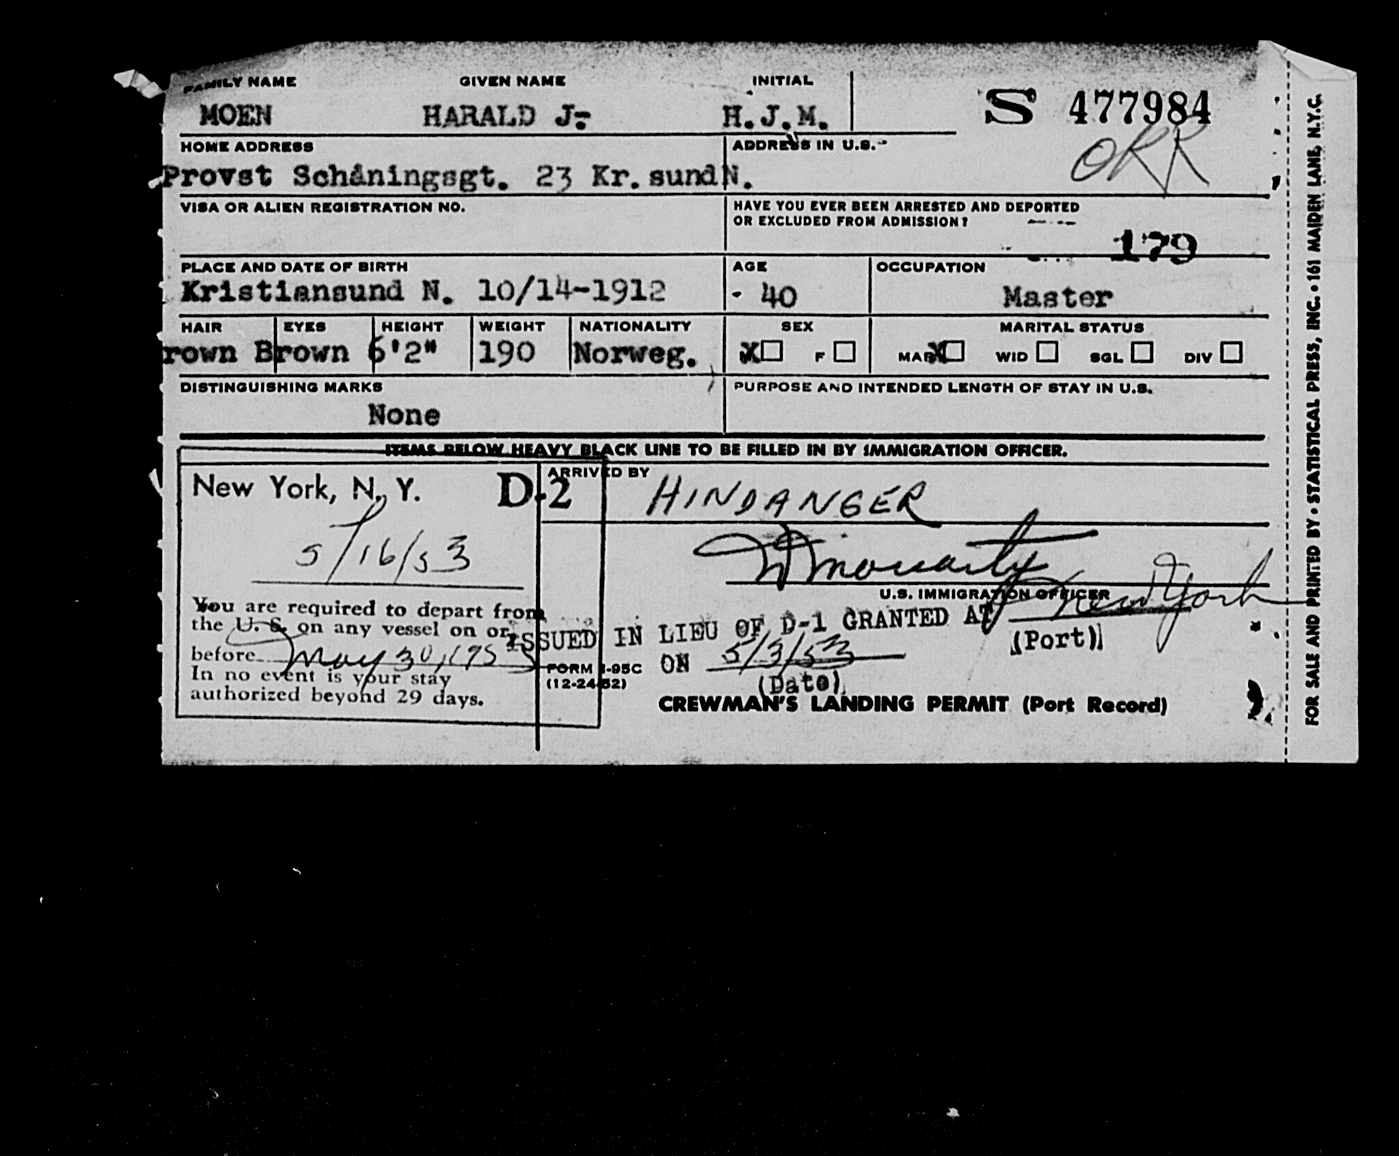 FAMILY NAME GIVEN NAME INITIAL
MOEN HARALD J. H.J.M. S 477984
ORR
HOME ADDRESS ADDRESS IN U.S.
Provst Schåningsgt. 23 Kr.sund N.
VISA OR ALIEN REGISTRATION NO. HAVE YOU EVER BEEN ARRESTED AND DEPORTED
OR EXCLUDED FROM ADMISSION?
179
PLACE AND DATE OF BIRTH AGE OCCUPATION
Kristiansund N. 10/14-1912 - 40 Master
HAIR EYES HEIGHT WEIGHT NATIONALITY SEX MARITAL STATUS
rown Brown 6'2" 190 Norweg. X F MAR X WID SGL DIV
DISTINGUISHING MARKS PURPOSE AND INTENDED LENGTH OF STAY IN U.S.
None
ITEMS BELOW HEAVY BLACK LINE TO BE FILLED IN BY IMMIGRATION OFFICER.
New York, N. Y. D-2 ARRIVED BY HINDANGER
5/16/53
U.S. IMMIGRATION OFFICER
You are required to depart from
the U. S. on any vessel on or
before May 30, 1953
In no event is your stay
authorized beyond 29 days.
ISSUED IN LIEU OF D-1 GRANTED AT New York
(Port)
ON 5/3/53
(Date)
FORM I-95C
(12-24-52)
CREWMAN'S LANDING PERMIT (Port Record)
FOR SALE AND PRINTED BY • STATISTICAL PRESS, INC. • 161 MAIDEN LANE, N.Y.C.